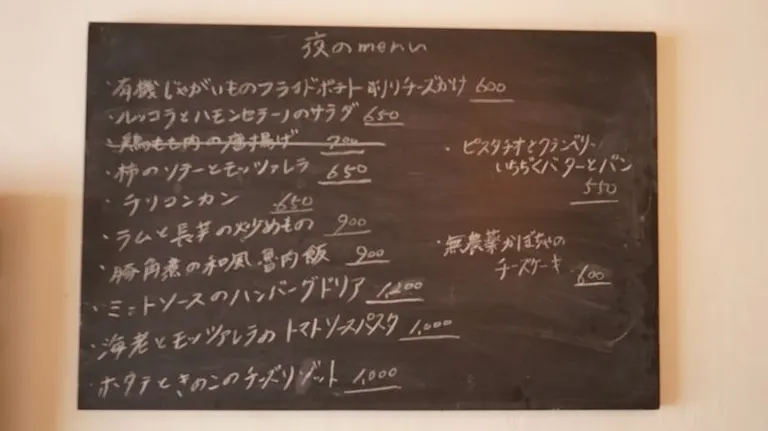 夜のmenu
・有機じゃがいものフライドポテト 削りチーズかけ 600
・ルッコラとハモンセラーノのサラダ 650
・鶏もも肉の唐揚げ 700
・柿のソテーとモッツァレラ 650
・チリコンカン 650
・ラムと長芋の炒めもの 900
・豚角煮の和風魯肉飯 900
・ミートソースのハンバーグドリア 1,200
・海老とモッツァレラのトマトソースパスタ 1,000
・ホタテときのこのチーズリゾット 1,000
・ピスタチオとクランベリー
いちぢくバターとパン
550
・無農薬かぼちゃの
チーズケーキ 600